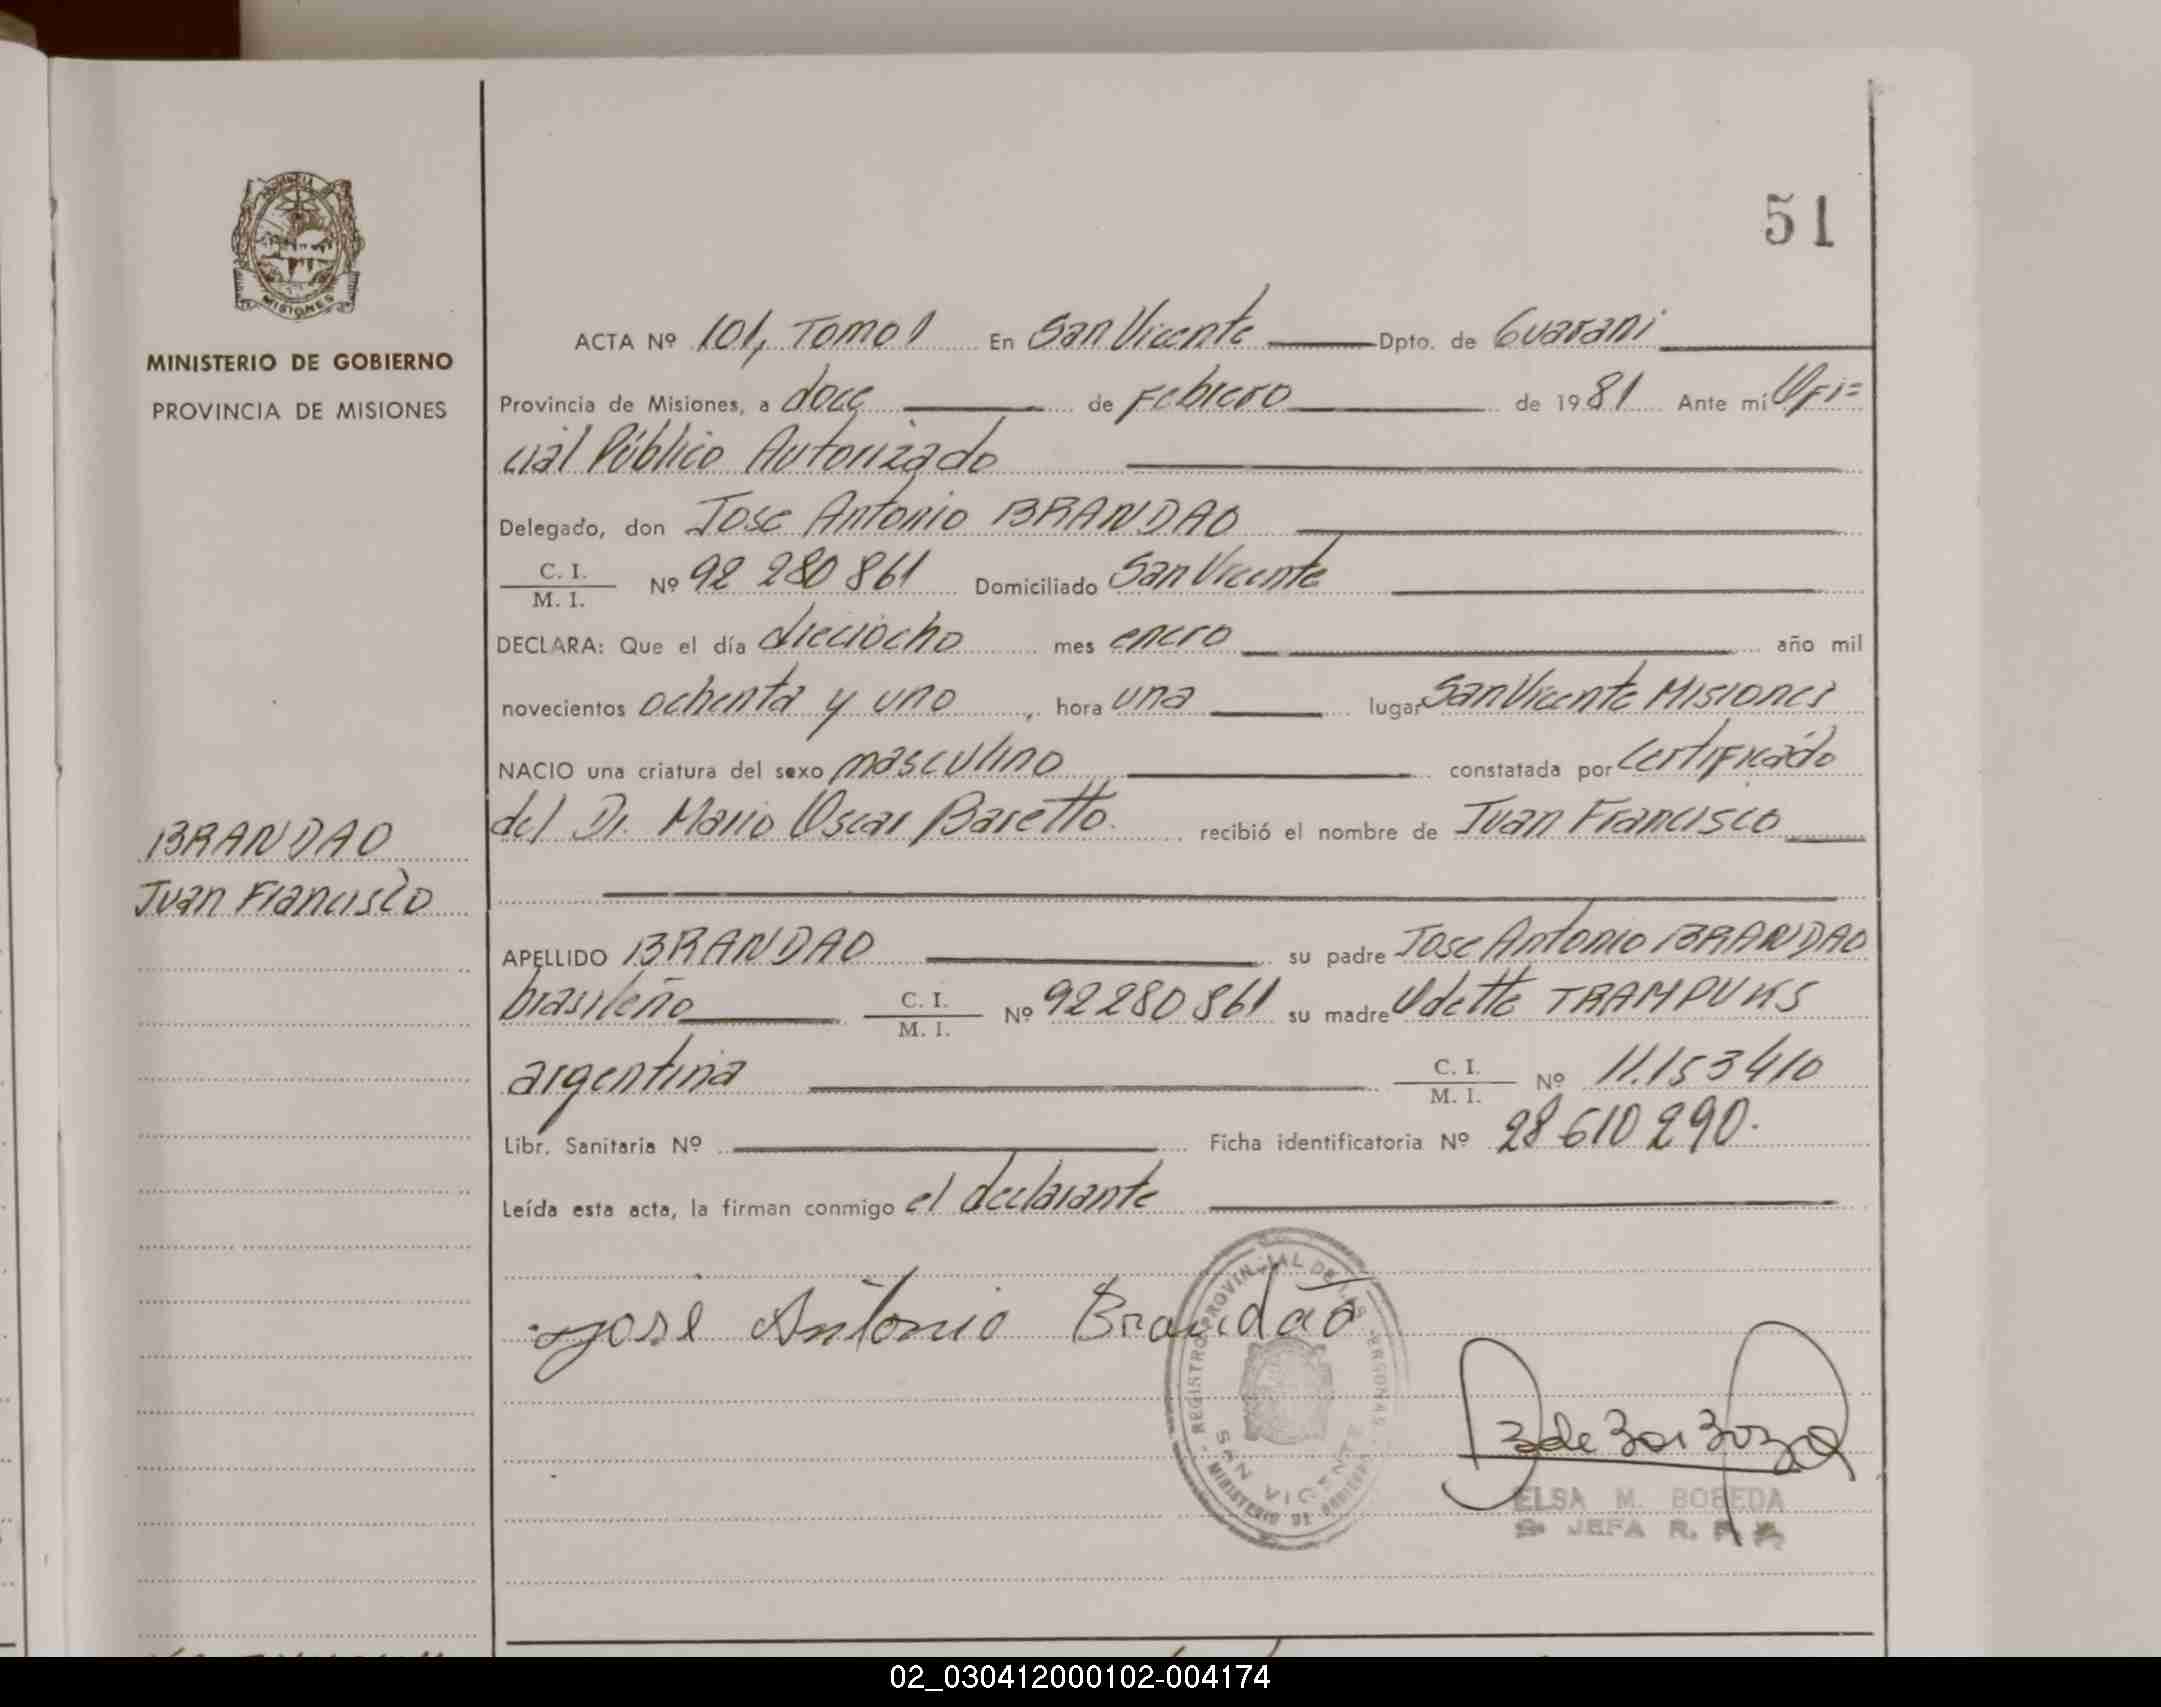 51
MINISTERIO DE GOBIERNO
PROVINCIA DE MISIONES
MISIONES
ACTA Nº 101, Tomo 1 En San Vicente Dpto. de Guarani
Provincia de Misiones, a doce de Febrero de 1981 Ante mí Ofi=
cial Público Autorizado
Delegado, don Jose Antonio BRANDAO
C. I.
M. I. Nº 92 280 861 Domiciliado San Vicente
DECLARA: Que el día dieciocho mes enero año mil
novecientos ochenta y uno, hora una lugar San Vicente Misiones
NACIO una criatura del sexo masculino constatada por Certificado
del Dr. Mario Oscar Baretto. recibió el nombre de Juan Francisco
BRANDAO
Juan Francisco
APELLIDO BRANDAO su padre Jose Antonio BRANDAO
brasileño C. I.
M. I. Nº 92280861 su madre Odette TRAMPUKS
argentina C. I.
M. I. Nº 11.153410
Libr. Sanitaria Nº Ficha identificatoria Nº 28 610 290.
Leída esta acta, la firman conmigo el declarante
José Antonio Brandão
REGISTRO PROVINCIAL DE LAS PERSONAS
SAN VICENTE
MINISTERIO DE GOBIERNO
ELSA M. BOBEDA
JEFA R.
02_030412000102-004174